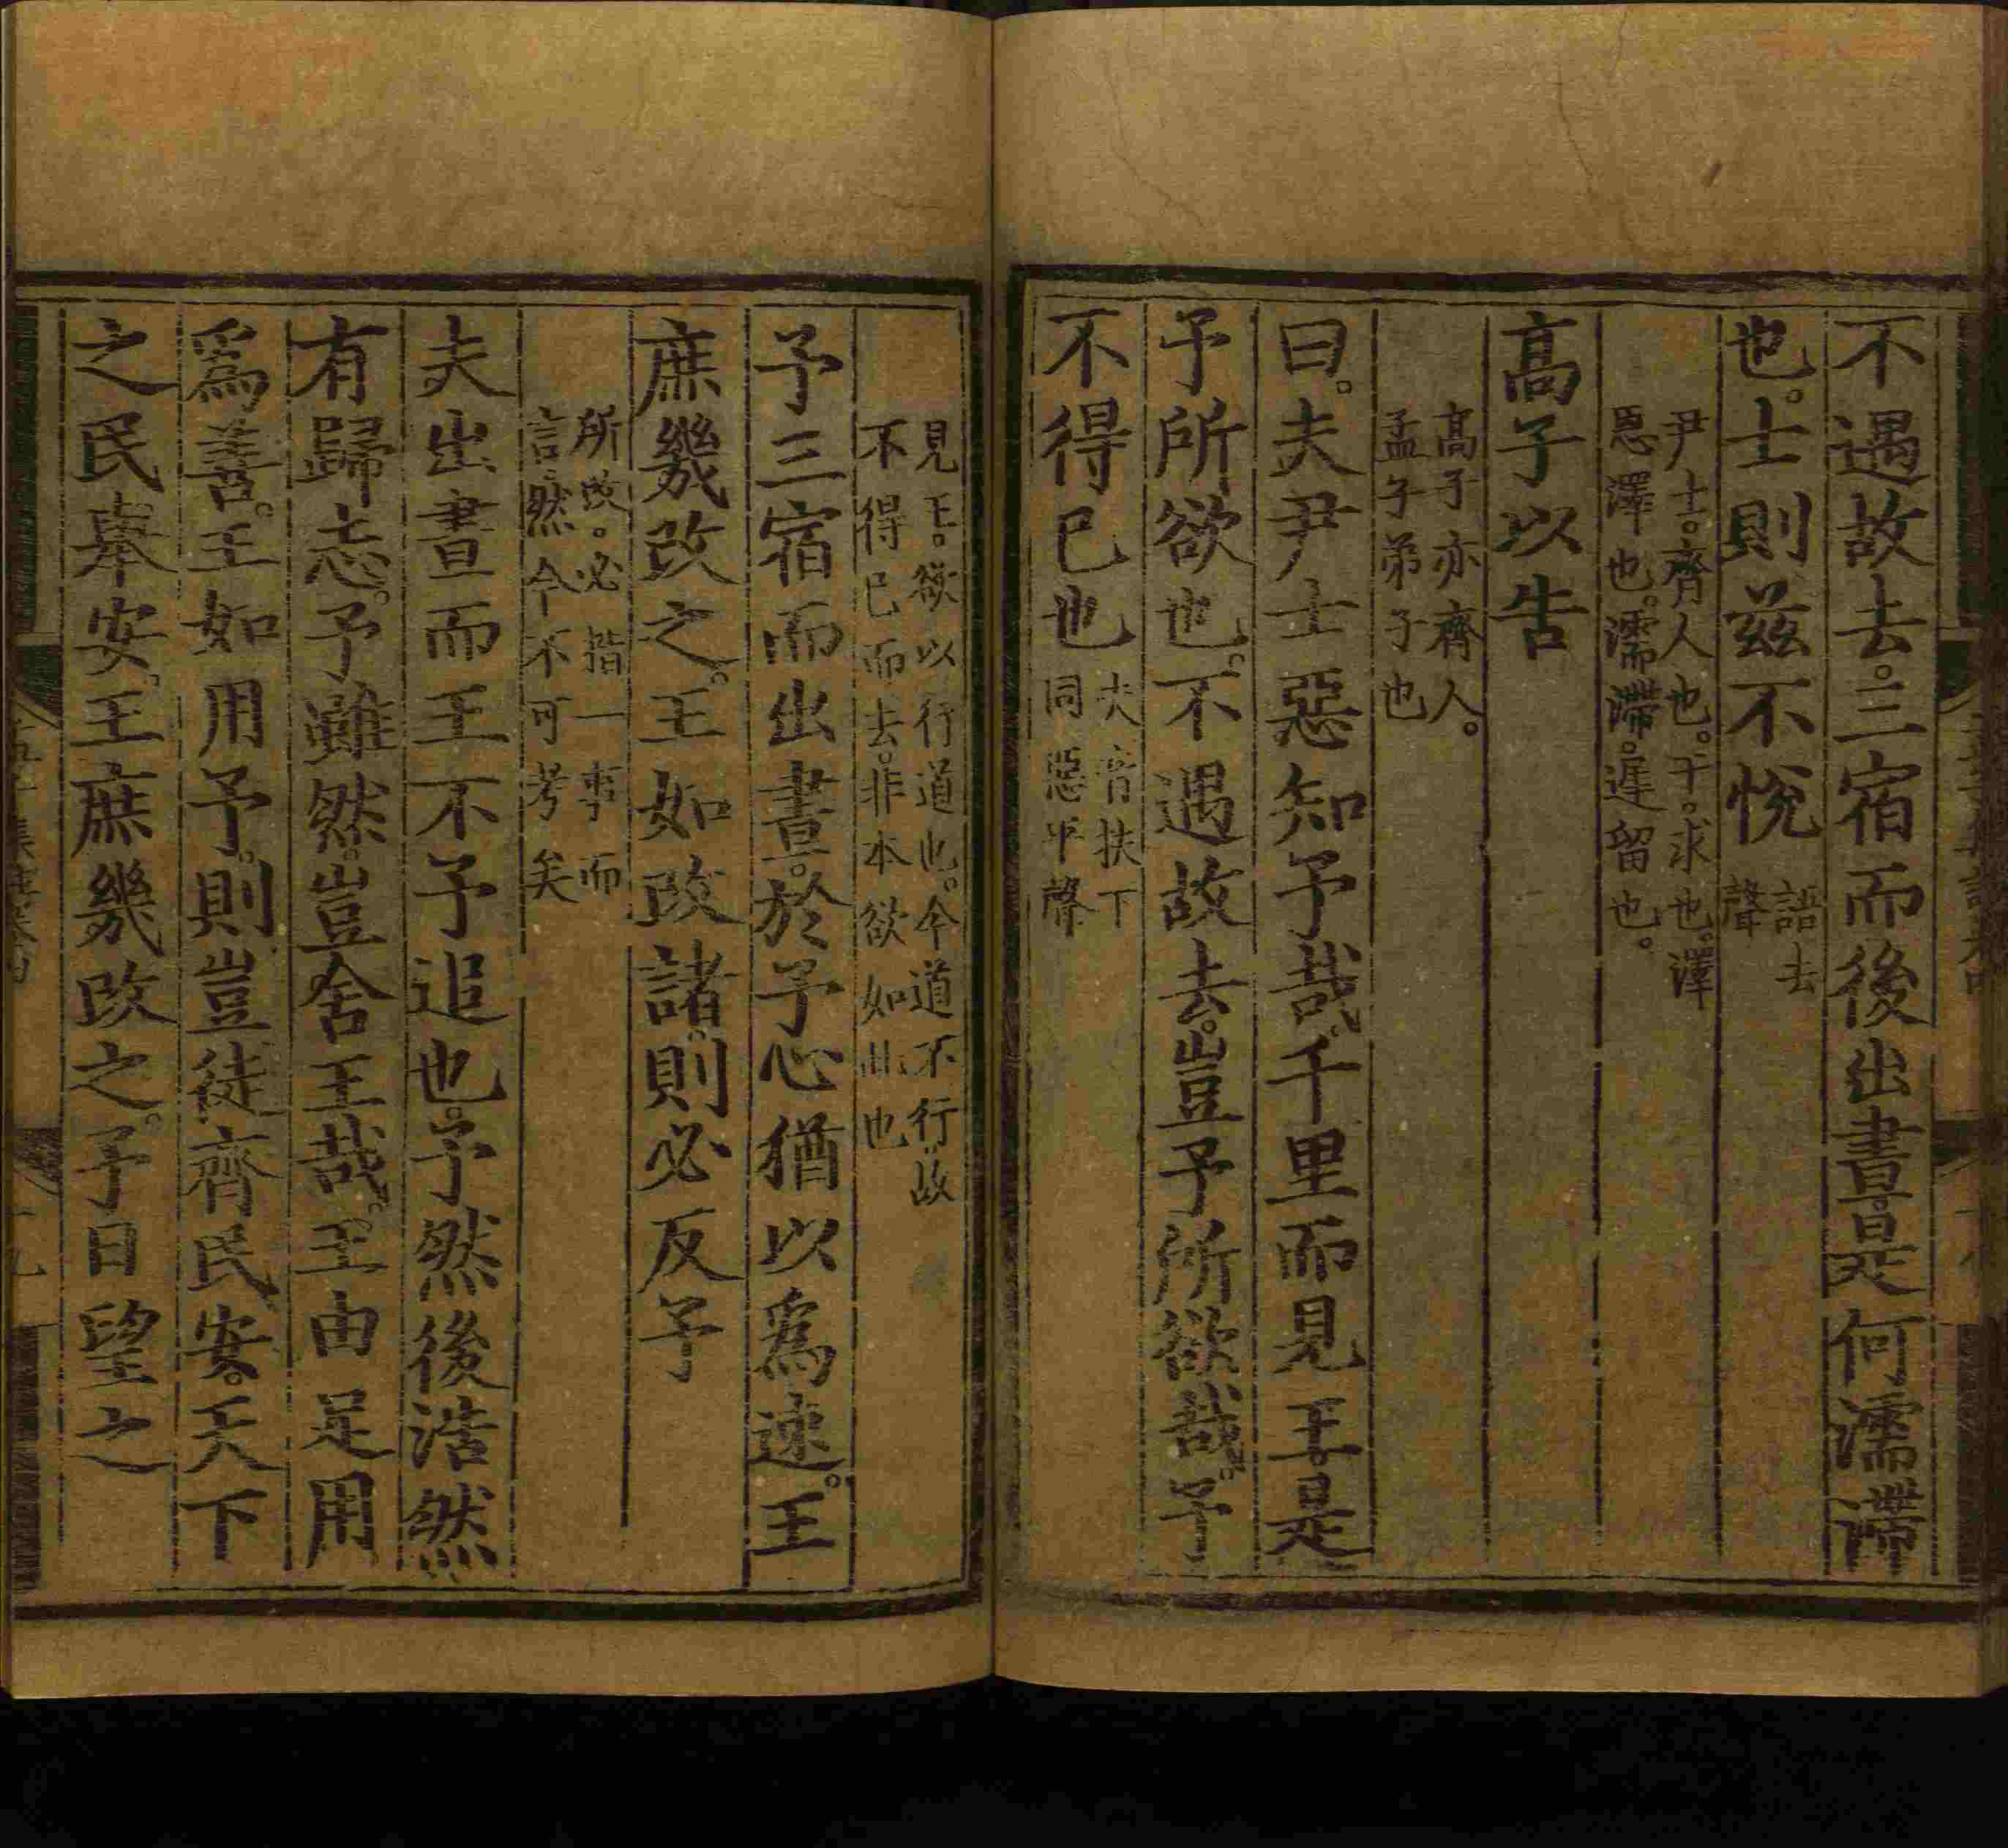 不遇故去。三宿而後出晝。是何濡滯
也。士則茲不悅
語去
聲
尹士。齊人也。干。求也。澤
恩澤也。濡滯。遲留也。
高子以告
高子亦齊人。
孟子弟子也
曰。夫尹士惡知予哉。千里而見王。是
予所欲也。不遇故去。豈予所欲哉。予
不得已也
夫音扶下
同惡平聲
見王。欲以行道也。今道不行。故
不得已而去。非本欲如此也
予三宿而出晝。於予心猶以爲速。王
庶幾改之。王如改諸。則必反予
所改。必指一事而
言。然今不可考矣
夫出晝而王不予追也。予然後浩然
有歸志。予雖然。豈舍王哉。王由足用
爲善。王如用予。則豈徒齊民安。天下
之民舉安。王庶幾改之。予日望之